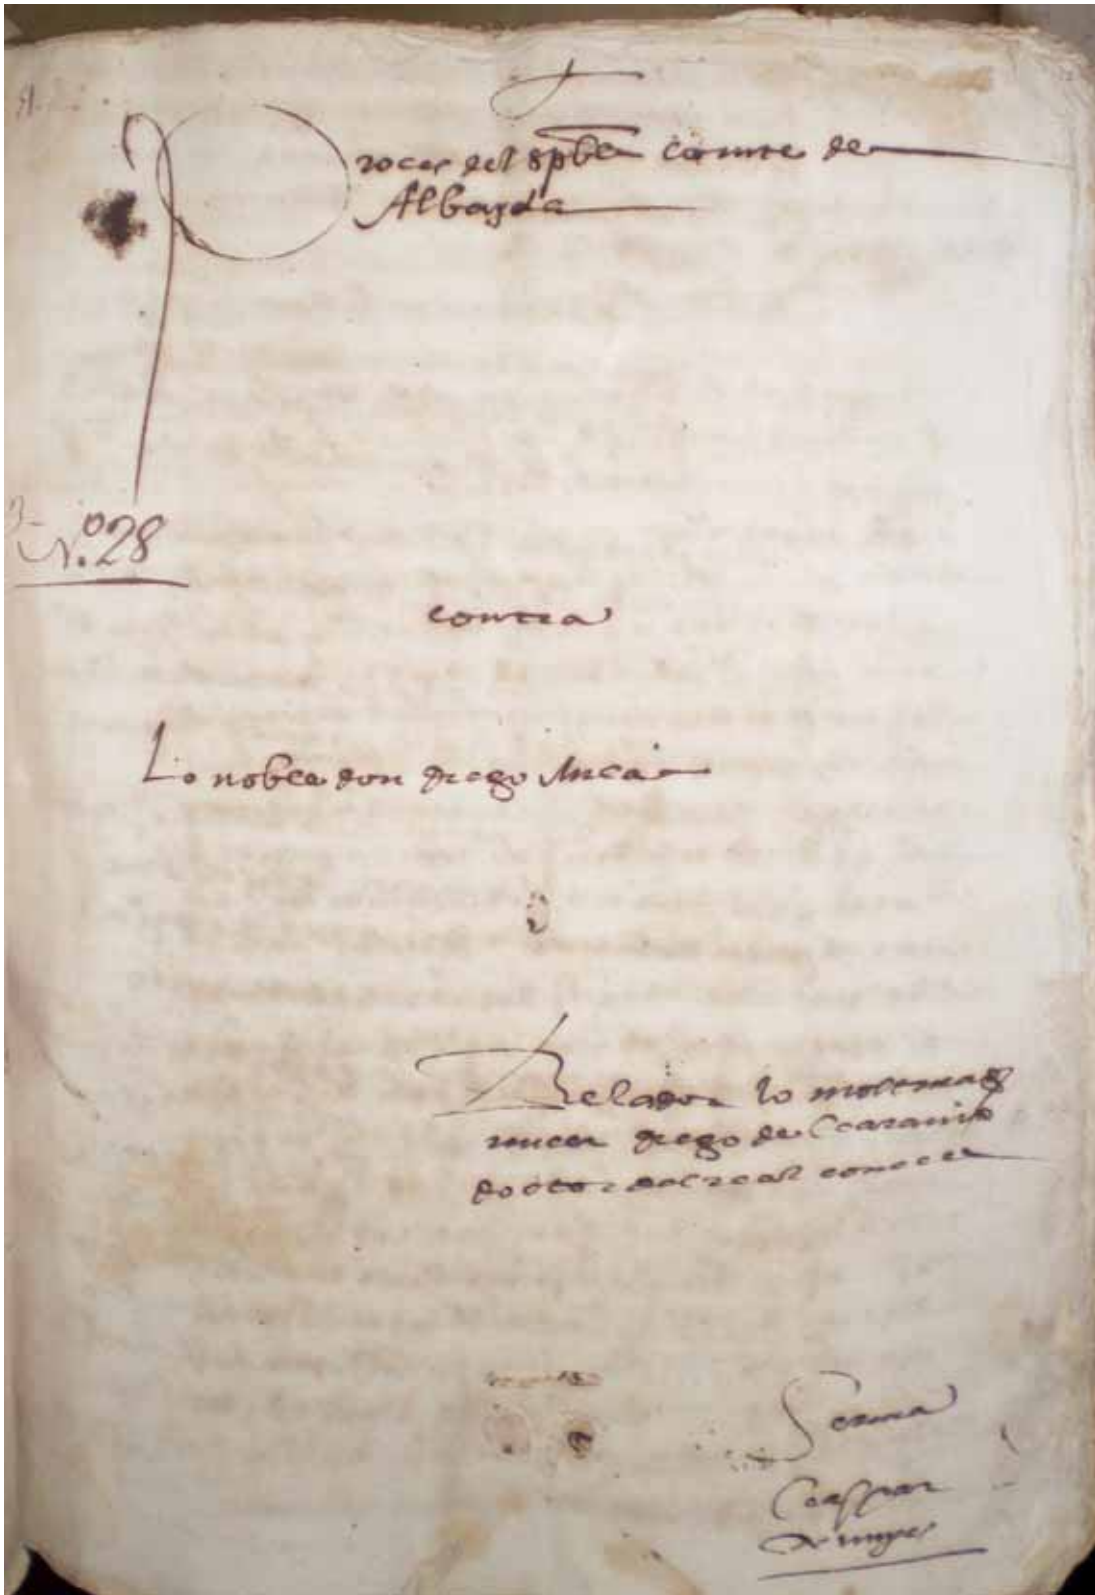 Proces del spble comte de
Albayda
Nº. 28
contra
Lo noble don diego
Relador lo mag
micer diego de
doctor del real concell
Gaspar